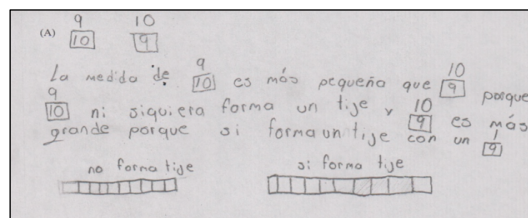 (A) 9/10 10/9
La medida de 9/10 es más pequeña que 10/9 porque
9/10 ni siquiera forma un tije y 10/9 es más
grande porque si forma un tije con un 1/9
no forma tije si forma tije